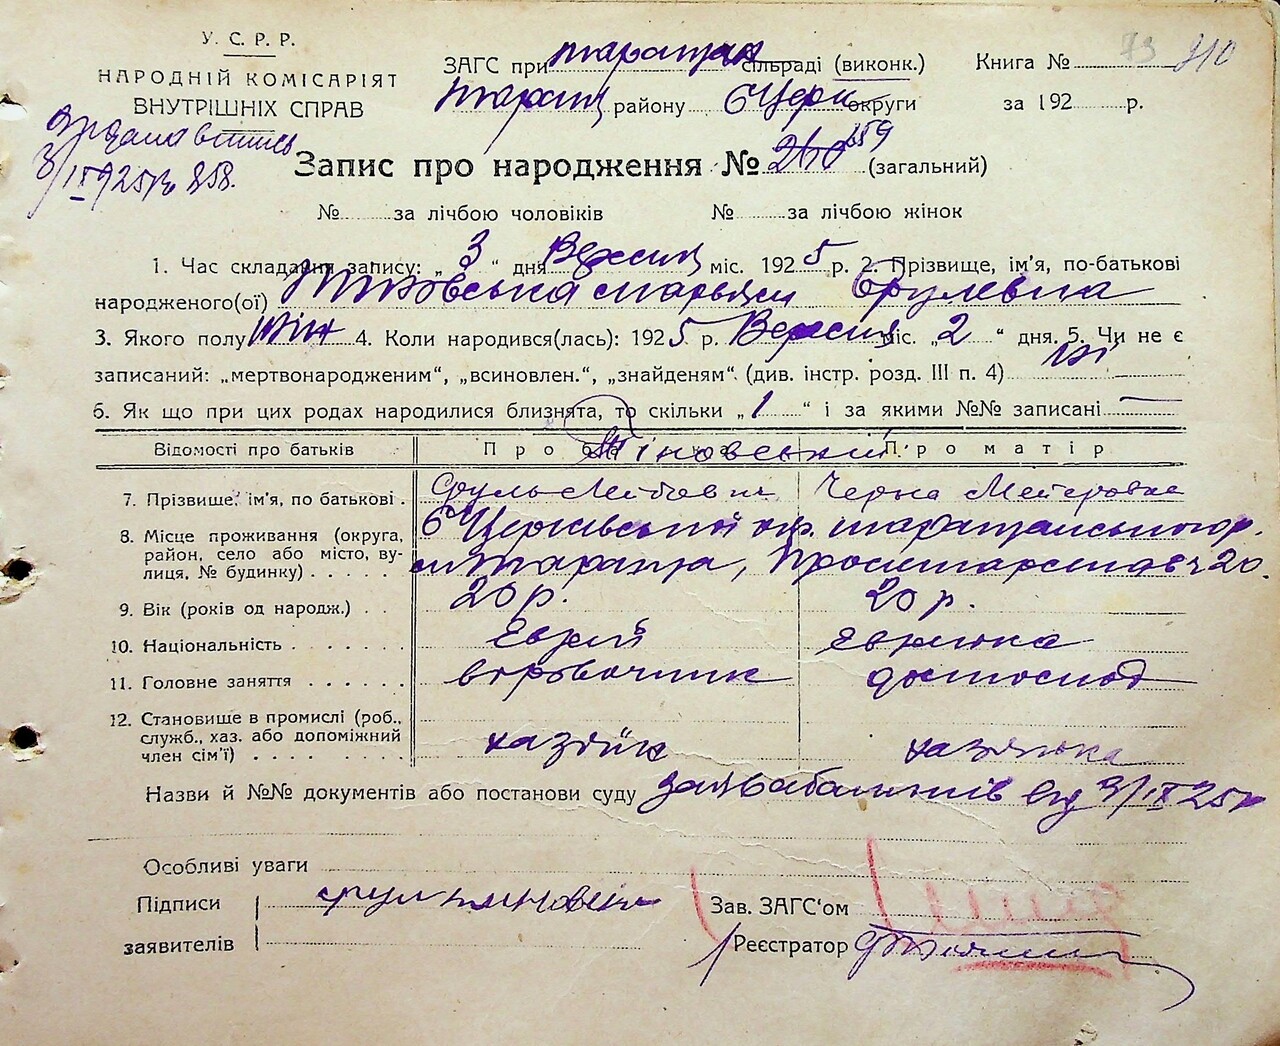 У. С. Р. Р.
НАРОДНІЙ КОМІСАРІЯТ
ВНУТРІШНІХ СПРАВ
ЗАГС при Таращан сільраді (виконк.)
Таращ району БЦерк округи
Книга № 73 910
за 192 р.
3/IX 925 р № 858.
Запис про народження № 260 859 (загальний)
№ за лічбою чоловіків № за лічбою жінок
1. Час складання запису: „ 3 “ дня Вересня міс. 1925 р. 2. Прізвище, ім'я, по-батькові
народженого(ої) Тіновська Марьям Срулевна
3. Якого полу Жін 4. Коли народився(лась): 1925 р. Вересня міс. „ 2 “ дня. 5. Чи не є
записаний: „мертвонародженим“, „всиновлен.“, „знайденям“. (див. інстр. розд. III п. 4) ні
6. Як що при цих родах народилися близнята, то скільки „ 1 “ і за якими №№ записані —
Відомості про батьків Про батька Про матір
Тіновський
7. Прізвище, ім'я, по батькові Сруль Лейбович Черна Мейеровна
8. Місце проживання (округа, район, село або місто, вулиця, № будинку) БЦерківської окр. Таращанського р.
м Тараща, Пролетарська ч 20.
9. Вік (років од народж.) 20 р. 20 р.
10. Національність Еврей Еврейка
11. Головне заняття домоспод
12. Становище в промислі (роб., служб., хаз. або допоміжний член сім'ї) хазяїн хазяйка
Назви й №№ документів або постанови суду від 3/IX 25 р
Особливі уваги
Підписи
заявителів
Зав. ЗАГС'ом
Реєстратор